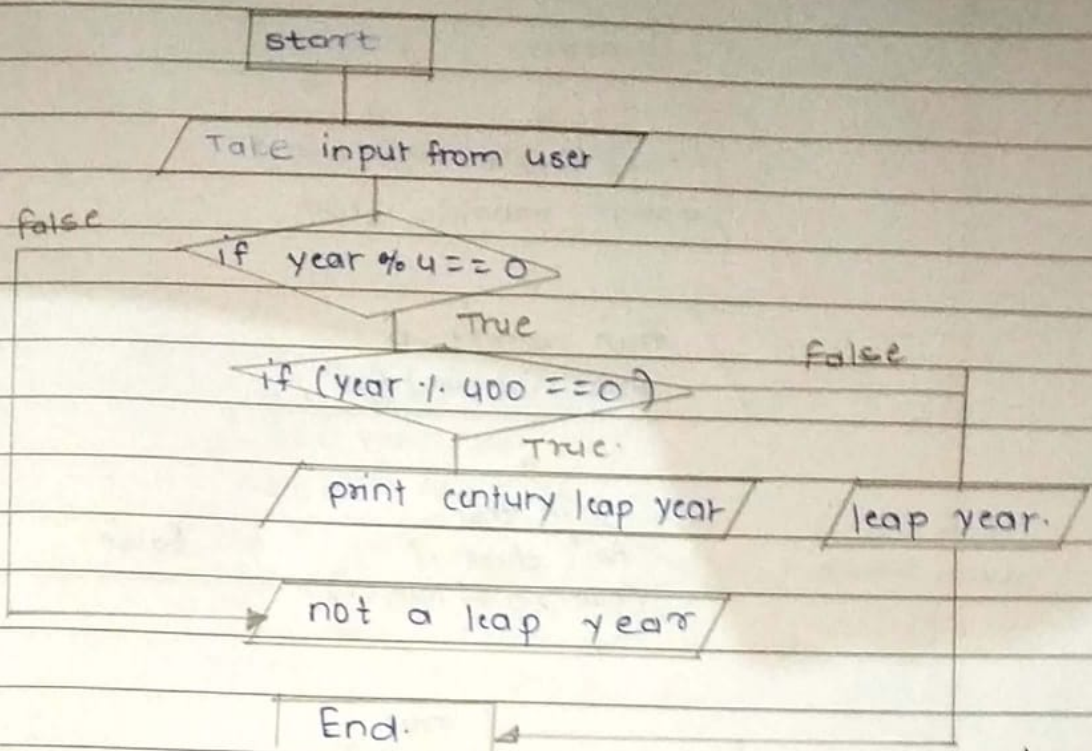 start
Take input from user
false
if year % 4 == 0
True
False
if (year % 400 == 0)
True.
print century leap year
leap year.
not a leap year
End.